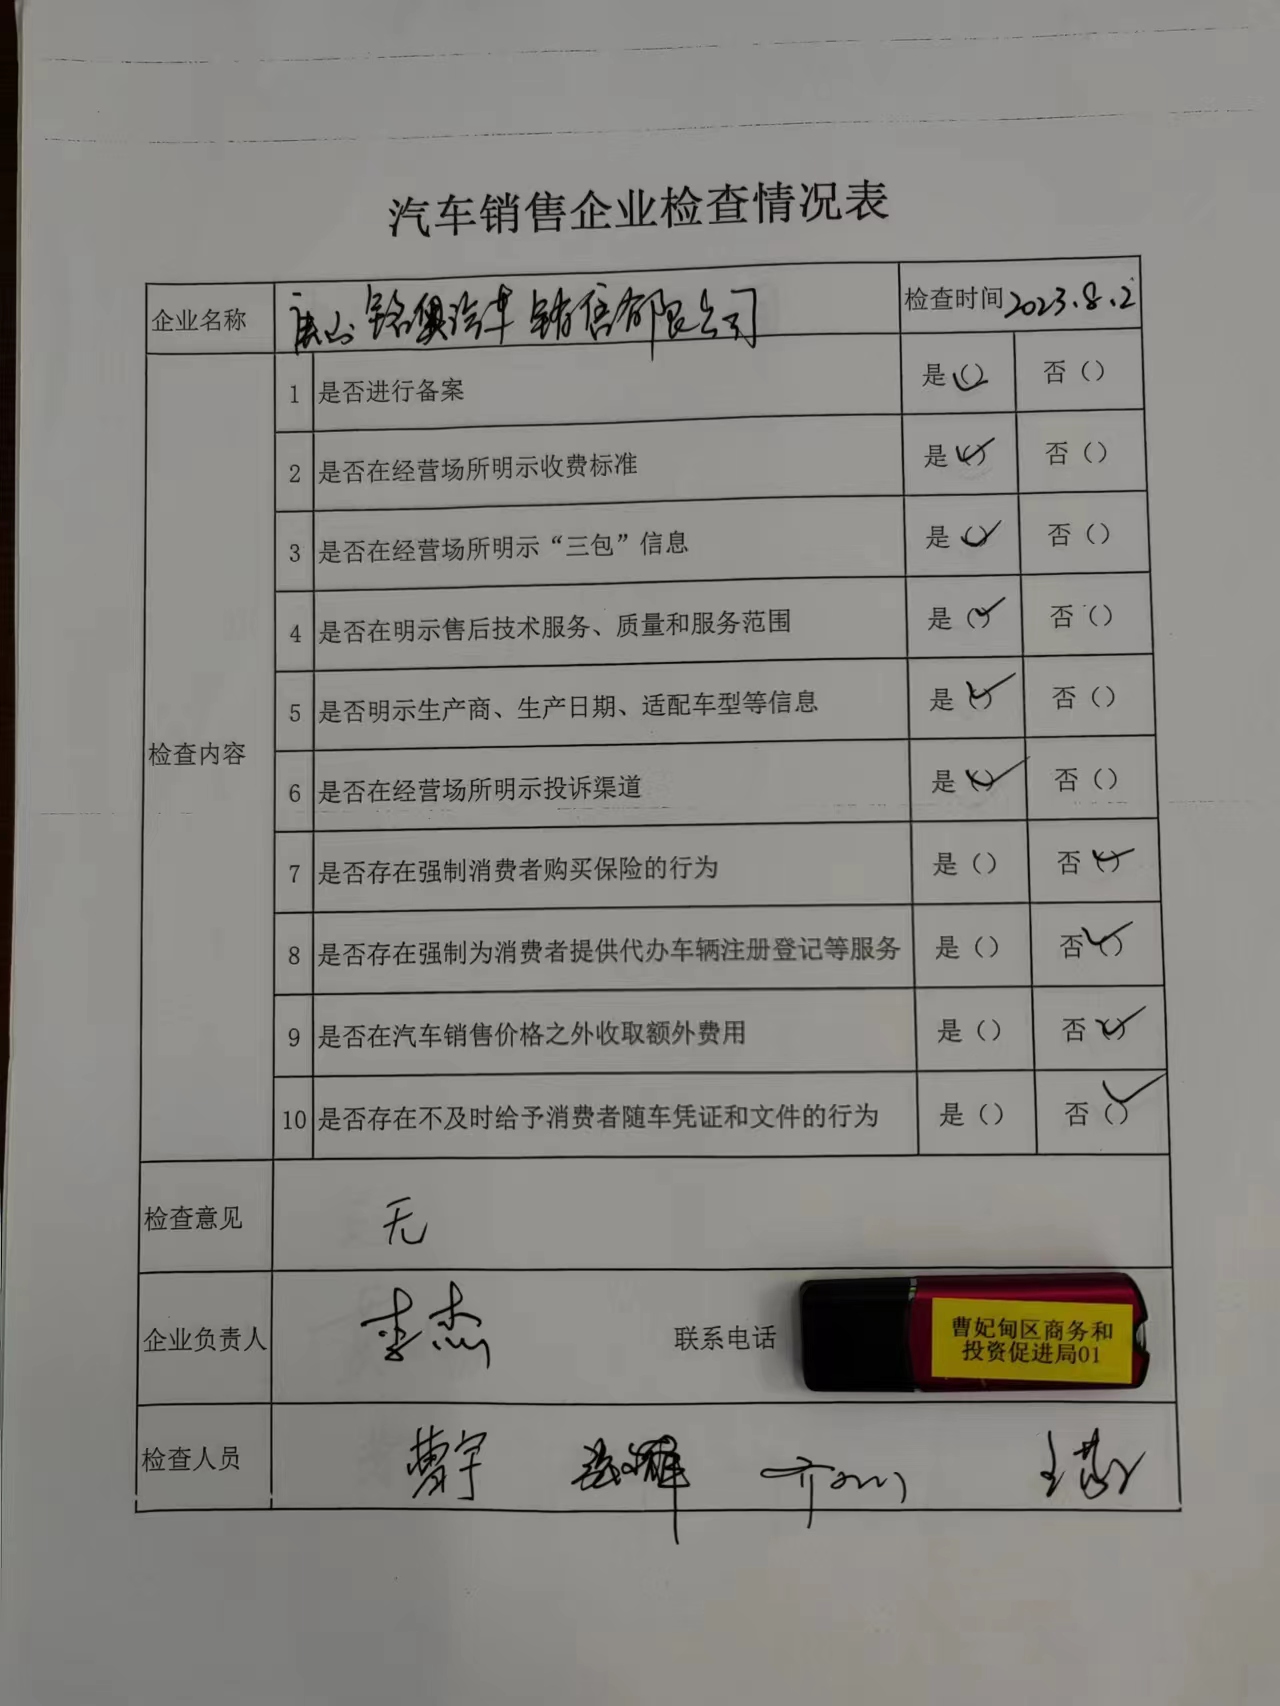 汽车销售企业检查情况表
企业名称 唐山铭奥汽车销售有限公司 检查时间 2023.8.2
检查内容
1 是否进行备案 是(✓) 否()
2 是否在经营场所明示收费标准 是(✓) 否()
3 是否在经营场所明示“三包”信息 是(✓) 否()
4 是否在明示售后技术服务、质量和服务范围 是(✓) 否()
5 是否明示生产商、生产日期、适配车型等信息 是(✓) 否()
6 是否在经营场所明示投诉渠道 是(✓) 否()
7 是否存在强制消费者购买保险的行为 是() 否(✓)
8 是否存在强制为消费者提供代办车辆注册登记等服务 是() 否(✓)
9 是否在汽车销售价格之外收取额外费用 是() 否(✓)
10 是否存在不及时给予消费者随车凭证和文件的行为 是() 否(✓)
检查意见 无
企业负责人 李杰 联系电话
曹妃甸区商务和
投资促进局01
检查人员 曹宇